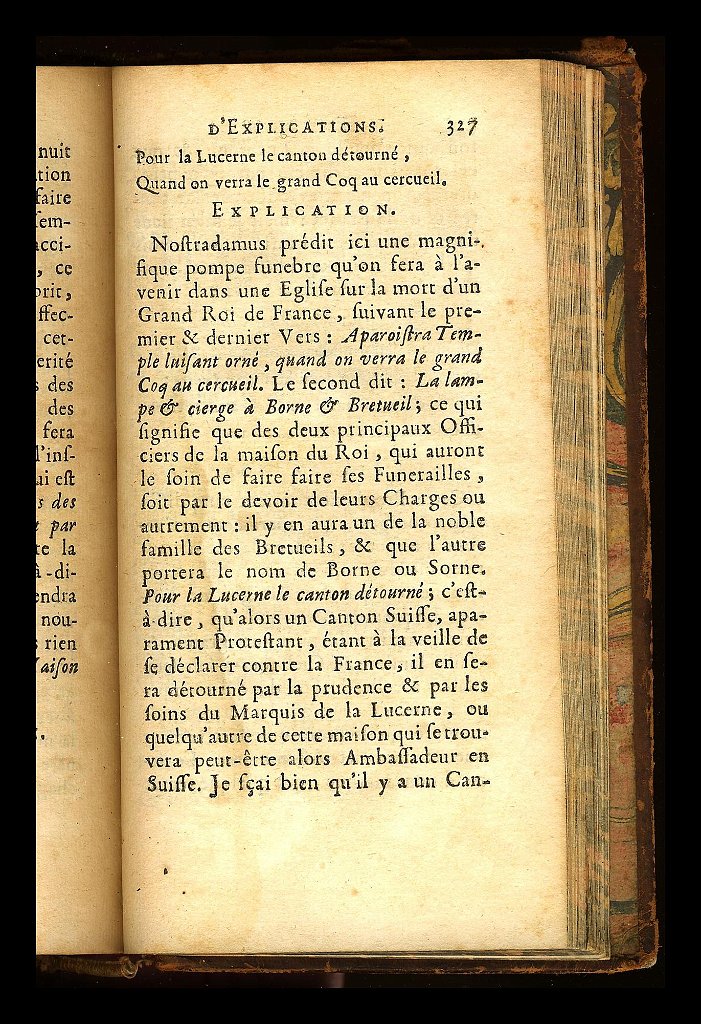 nuit
tion
faire
ſem-
acci-
, ce
prit,
ffec-
cet-
erité
s des
des
fera
l'inſ-
ui eſt
s des
t par
te la
à-di-
endra
nou-
s rien
aiſon
D'EXPLICATIONS. 327
Pour la Lucerne le canton détourné,
Quand on verra le grand Coq au cercueil.
EXPLICATION.
Noſtradamus prédit ici une magni-
fique pompe funebre qu'on fera à l'a-
venir dans une Egliſe ſur la mort d'un
Grand Roi de France, ſuivant le pre-
mier & dernier Vers : Aparoiſtra Tem-
ple luiſant orné, quand on verra le grand
Coq au cercueil. Le ſecond dit : La lam-
pe & cierge à Borne & Bretueil; ce qui
ſignifie que des deux principaux Offi-
ciers de la maiſon du Roi, qui auront
le ſoin de faire faire ſes Funerailles,
ſoit par le devoir de leurs Charges ou
autrement : il y en aura un de la noble
famille des Bretueils, & que l'autre
portera le nom de Borne ou Sorne.
Pour la Lucerne le canton détourné; c'eſt-
à dire, qu'alors un Canton Suiſſe, apa-
rament Proteſtant, étant à la veille de
ſe déclarer contre la France, il en ſe-
ra détourné par la prudence & par les
ſoins du Marquis de la Lucerne, ou
quelqu'autre de cette maiſon qui ſe trou-
vera peut-être alors Ambaſſadeur en
Suiſſe. Je ſçai bien qu'il y a un Can-